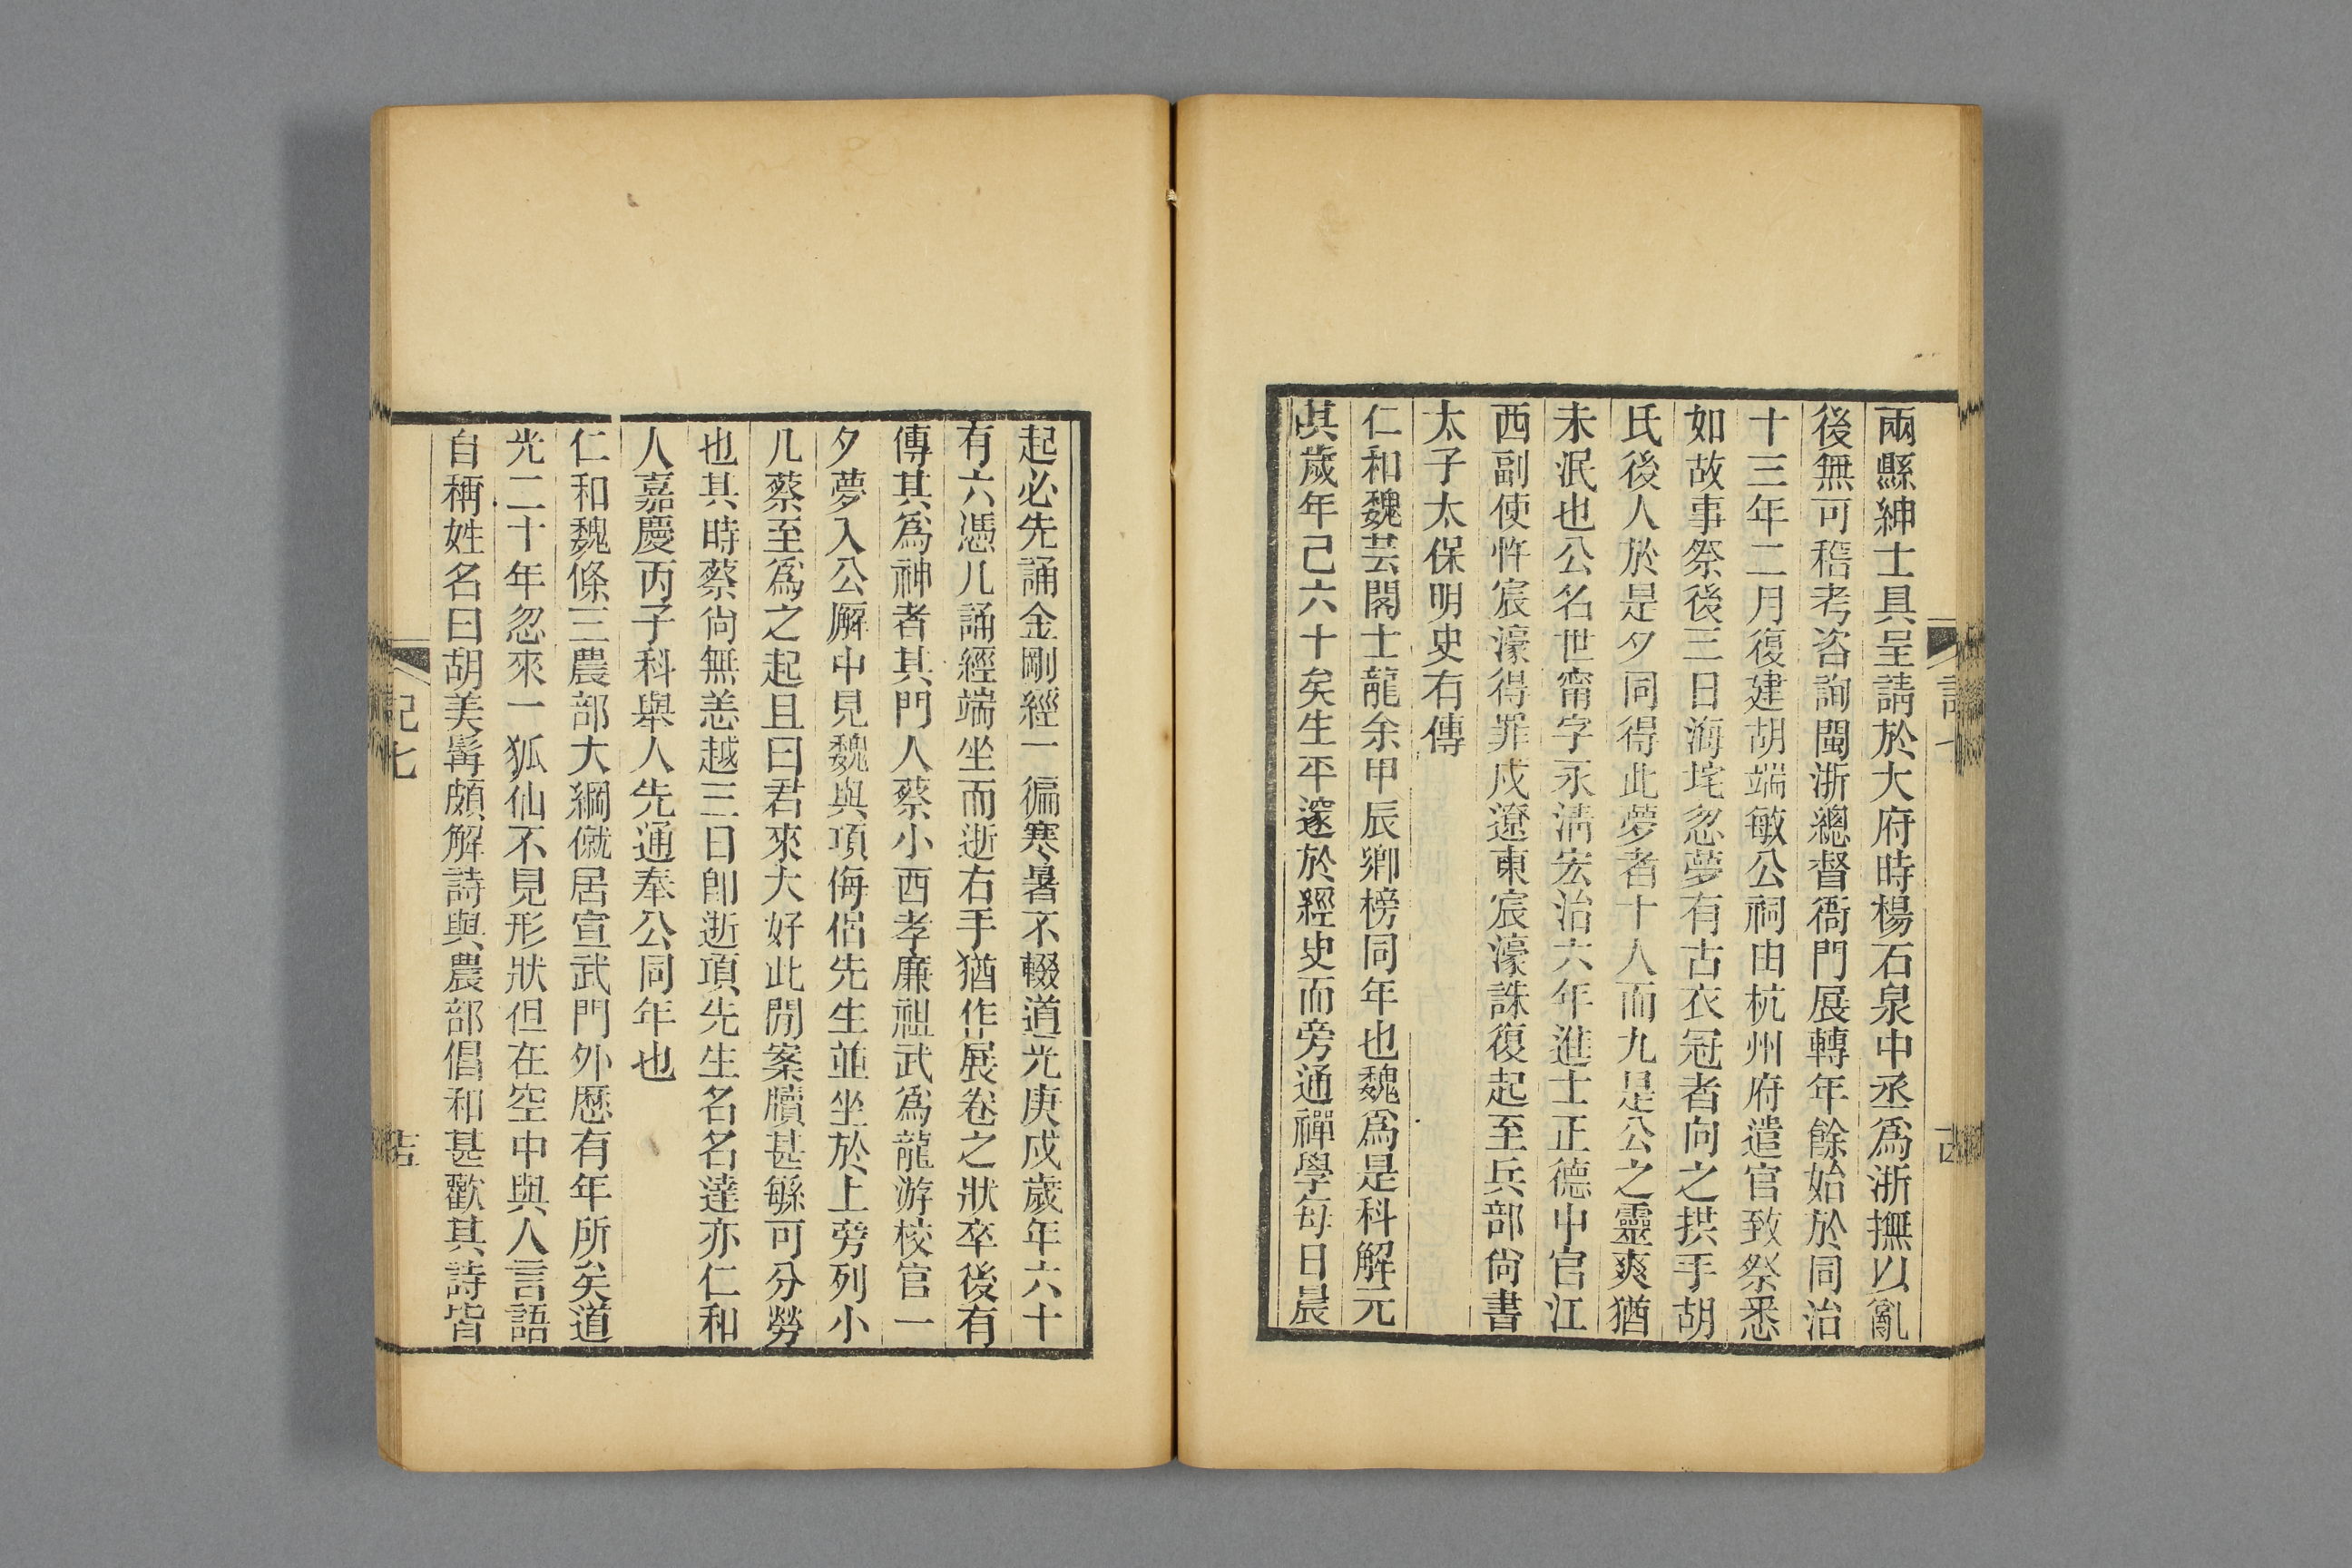 兩縣紳士具呈請於大府時楊石泉中丞爲浙撫以亂
後無可稽考咨詢閩浙總督衙門展轉年餘始於同治
十三年二月復建胡端敏公祠由杭州府遣官致祭悉
如故事祭後三日海垞忽夢有古衣冠者向之拱手胡
氏後人於是夕同得此夢者十人而九是公之靈爽猶
未泯也公名世甯字永淸宏治六年進士正德中官江
西副使忤宸濠得罪戍遼東宸濠誅復起至兵部尙書
太子太保明史有傳
仁和魏芸閣士龍余甲辰鄉榜同年也魏爲是科解元
其歲年已六十矣生平邃於經史而旁通禪學每日晨
起必先誦金剛經一徧寒暑不輟道光庚戌歲年六十
有六憑几誦經端坐而逝右手猶作展卷之狀卒後有
傳其爲神者其門人蔡小西孝廉祖武爲龍游校官一
夕夢入公廨中見魏與項侮侶先生並坐於上旁列小
几蔡至爲之起且曰君來大好此閒案牘甚緐可分勞
也其時蔡尙無恙越三日卽逝項先生名名達亦仁和
人嘉慶丙子科舉人先通奉公同年也
仁和魏條三農部大綱僦居宣武門外歷有年所矣道
光二十年忽來一狐仙不見形狀但在空中與人言語
自稱姓名曰胡美髯頗解詩與農部倡和甚歡其詩皆
記七